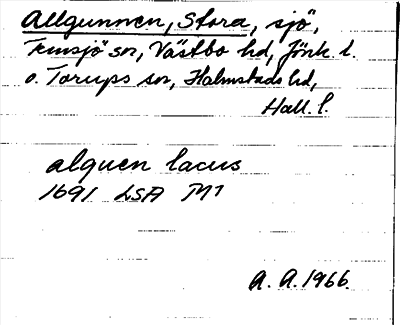 Allgunnen, Stora, sjö,
Femsjö sn, Västbo hd, Jönk. l.
o. Torups sn, Halmstads hd,
Hall. l.
alguen lacus
1691 LSA M1
A. A. 1966.